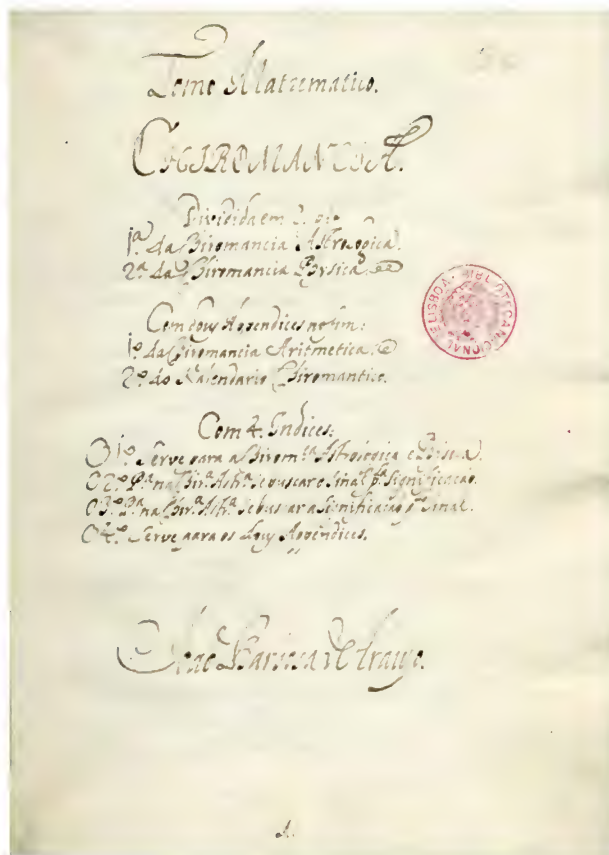 Tomo Mathematico.
CHIROMANCIA.
Dividida em 2. p.tes
1ª da Chiromancia Astrologica.
2ª da Chiromancia Physica.
Com dous Appendices no fim:
1º da Chiromancia Aritmetica.
2º do Kalendario Chiromantico.
Com 4. Indices:
O 1º Serve para a Chirom.ca Astrologica e Physica.
O 2º Pª na Chir.ª Ast.ª se buscar o Sinal pª Significação.
O 3º Pª na Chir.ª Ast.ª se buscar a Significação pº Sinal.
O 4º Serve para os dous Appendices.
BIBLIOTECA NACIONAL DE LISBOA
João Barbosa de Araujo.